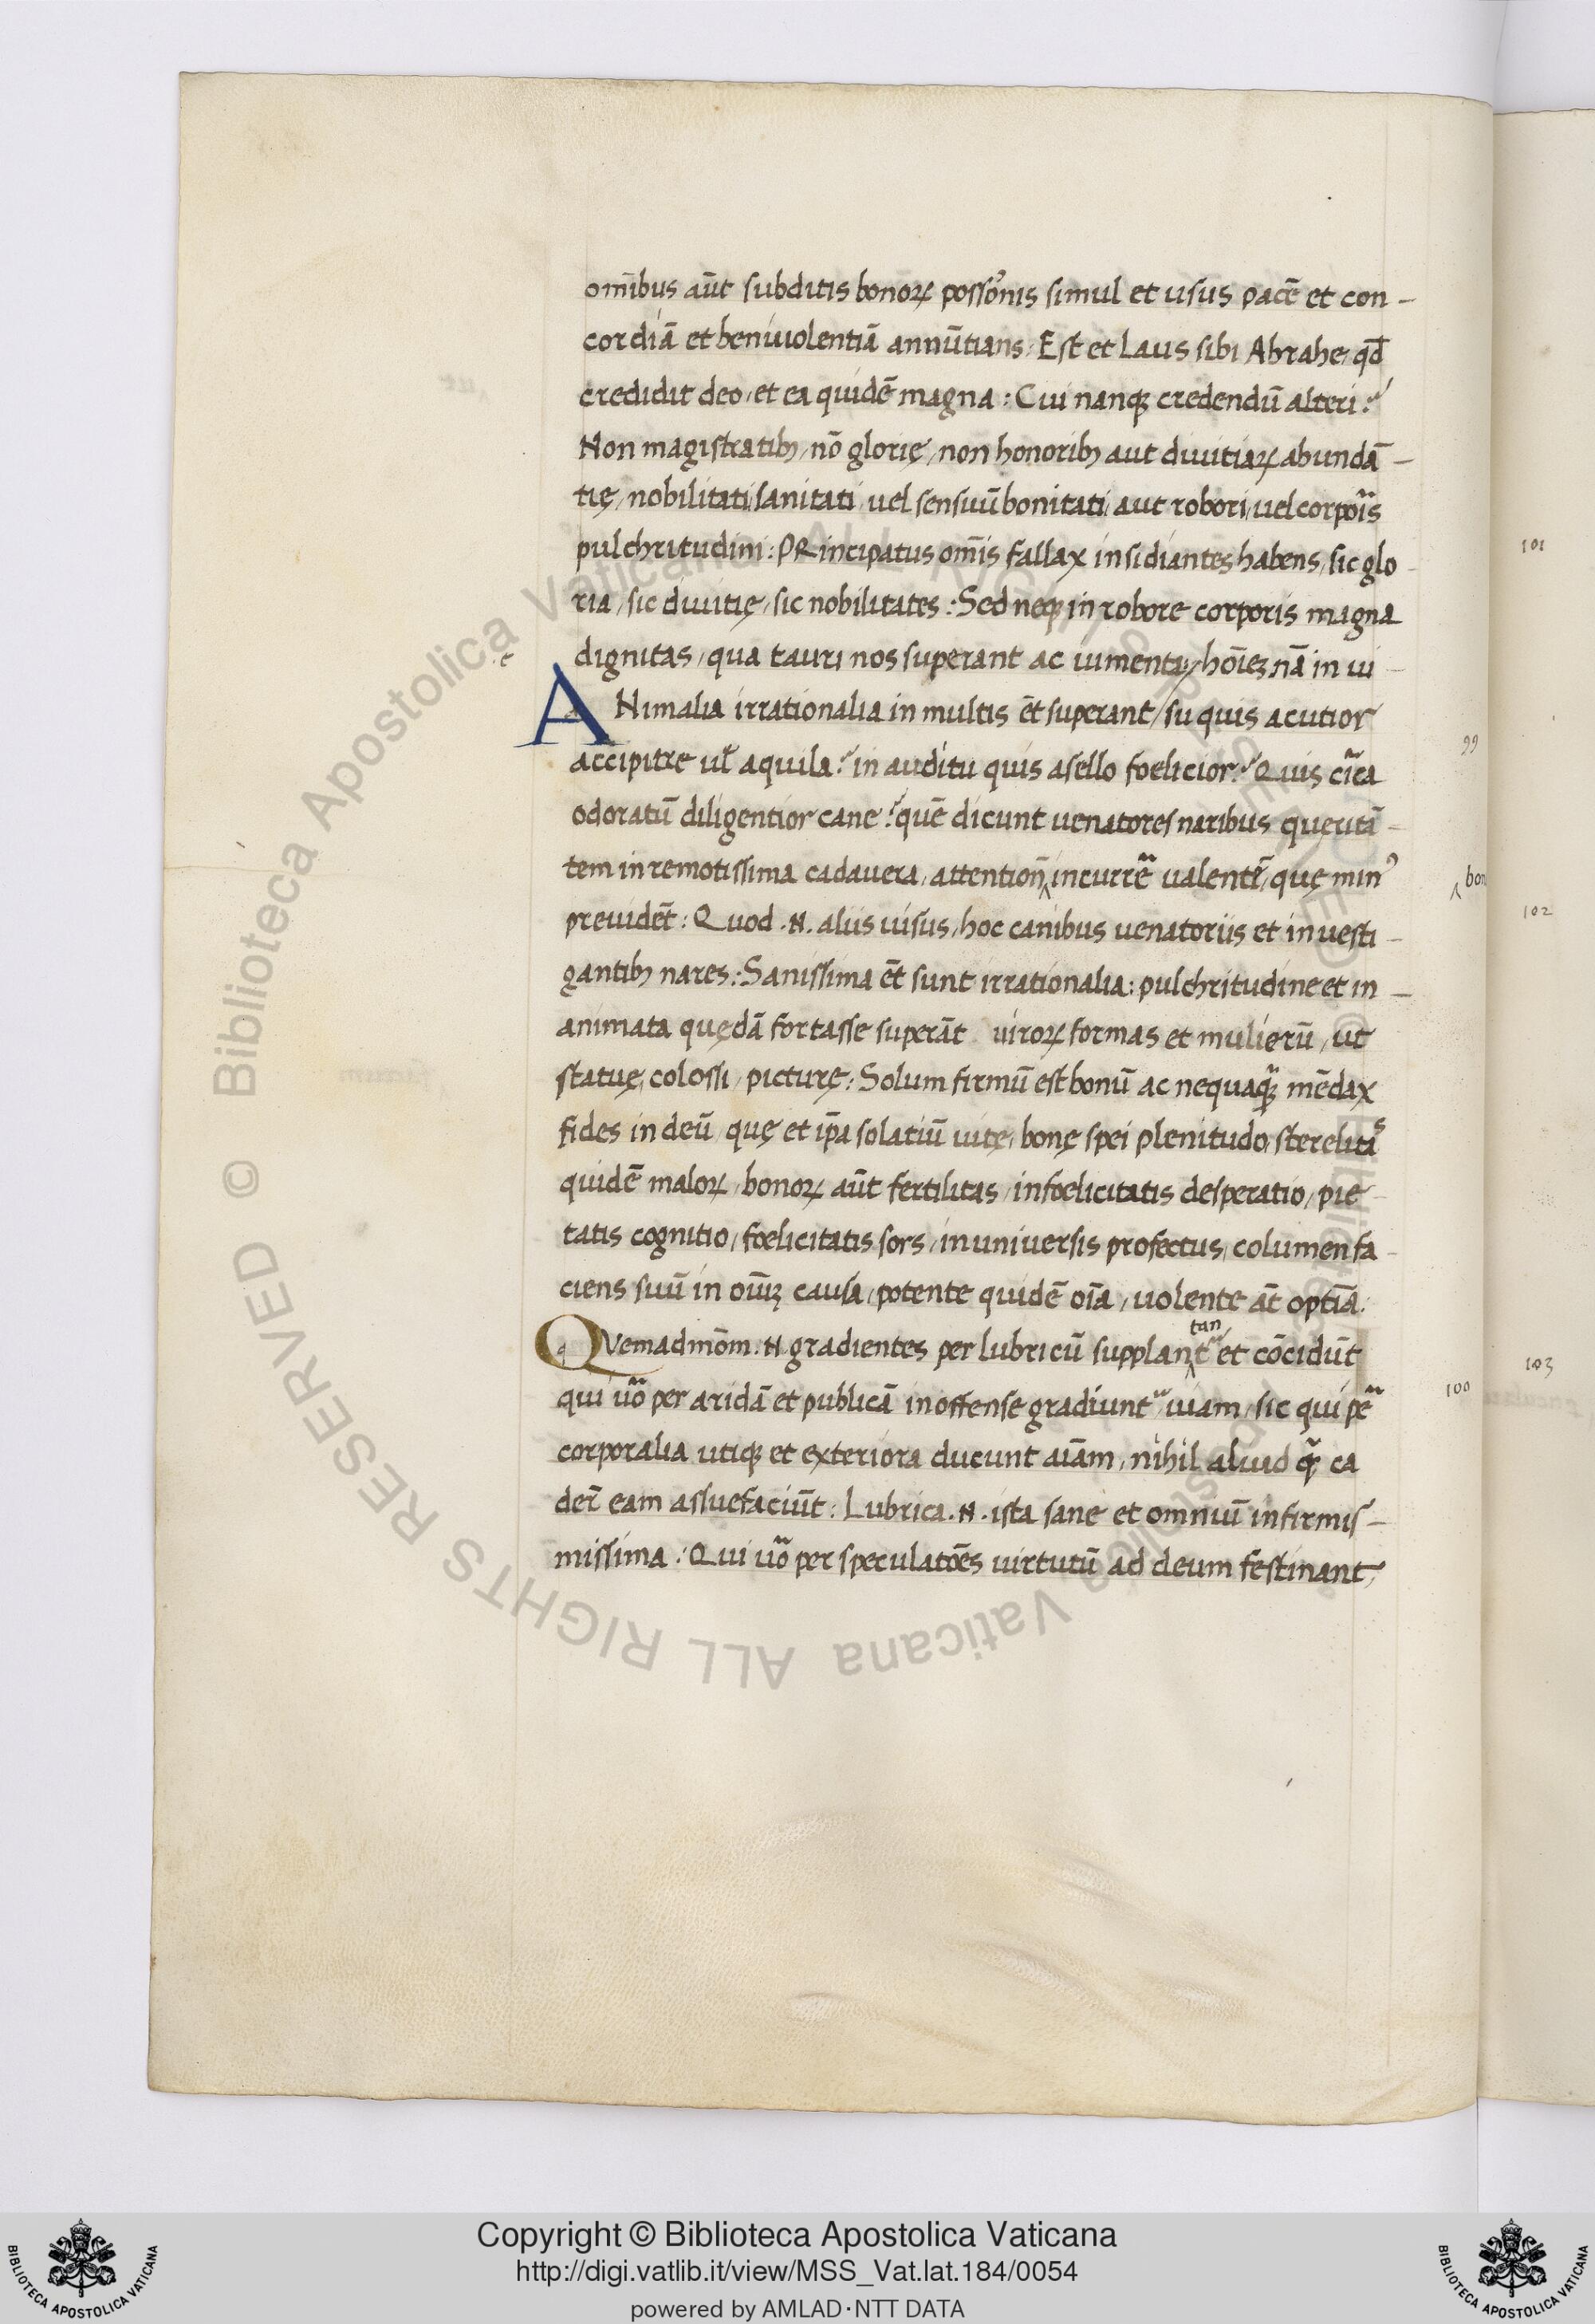 omībus aūt subditis bonoꝝ possōnis simul et usus pacē et con-
cordiā et beniuolentiā annūtians. Est et Laus sibi Abrahe, qđ
credidit deo, et ea quidē magna: Cui nanqꝫ credendū alteri?
Non magistratibꝫ, nō glorię, non honoribꝫ aut diuitiaꝝ abundā-
tię, nobilitati, sanitati, uel sensuū bonitati, aut robori, uel corpōis
pulchritudini: PRincipatus om̄is fallax insidiantes habens, sic glo
ria, sic diuitię, sic nobilitates: Sed neqꝫ in robore corporis magna
dignitas, qua tauri nos superant ac iumenta, hōieꝫ nā in ui-
ANimalia irrationalia in multis ēt superant, su quis acutior
accipitre ul̄ aquila? in auditu quis asello foelicior? Quis cīca
odoratū diligentior cane? quē dicunt uenatores naribus queritā-
tem in remotissima cadauera, attention̄ incurrē ualentē, quę min⁹
preuidēt: Quod .N. aliis uisus, hoc canibus uenatoriis et inuesti-
gantibꝫ nares: Sanissima ēt sunt irrationalia: pulchritudine et in-
animata quędā fortasse superāt uiroꝝ formas et mulierū, ut
statuę, colossi, picturę: Solum firmū est bonū ac nequaqꝫ̄ mēdax
fides in deū, quę et ip̄a solatiū uitę, bonę spei plenitudo, sterelitaˢ
quidē maloꝝ, bonoꝝ aūt fertilitas, infoelicitatis desperatio, pie-
tatis cognitio, foelicitatis sors, in uniuersis profectus, columen fa-
ciens suū in oūiꝫ causa, potente quidē oīa, uolente āt optīa:
QVemadmōm .N. gradientes per lubricū supplantanť et cōcidūt
qui uō per aridā et publicā inoffense gradiunť uiam, sic qui pē
corporalia utiqꝫ et exteriora ducunt aīam, nihil aliud qꝫ̄ ca
deř eam assuefaciūt: Lubrica .N. ista sane et omniū infirmis-
missima: Qui uō per speculatōes uirtutū ad deum festinant,
99
bon
100
101
102
103
Copyright © Biblioteca Apostolica Vaticana
http://digi.vatlib.it/view/MSS_Vat.lat.184/0054
powered by AMLAD·NTT DATA
BIBLIOTECA APOSTOLICA VATICANA
BIBLIOTECA APOSTOLICA VATICANA
© Biblioteca Apostolica Vaticana ALL RIGHTS RESERVED © Biblioteca Apostolica Vaticana ALL RIGHTS RESERVED